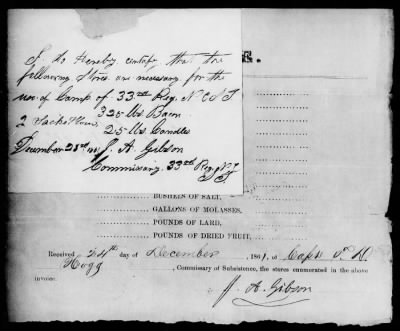 I do Hereby certify that the
following Stores are necessary for the
use of Camp of 33rd Reg. N C S T
325 lbs Bacon
2 Sacks Flour, 25 lbs Candles
December 28th J. A. Gibson
Commissary 33rd Reg. N C
S T
E.
BUSHELS OF SALT,
GALLONS OF MOLASSES,
POUNDS OF LARD,
POUNDS OF DRIED FRUIT,
Received 24th day of December 1861, of Capt T. D.
Hogg, Commissary of Subsistence, the stores enumerated in the above
invoice.
J. A. Gibson